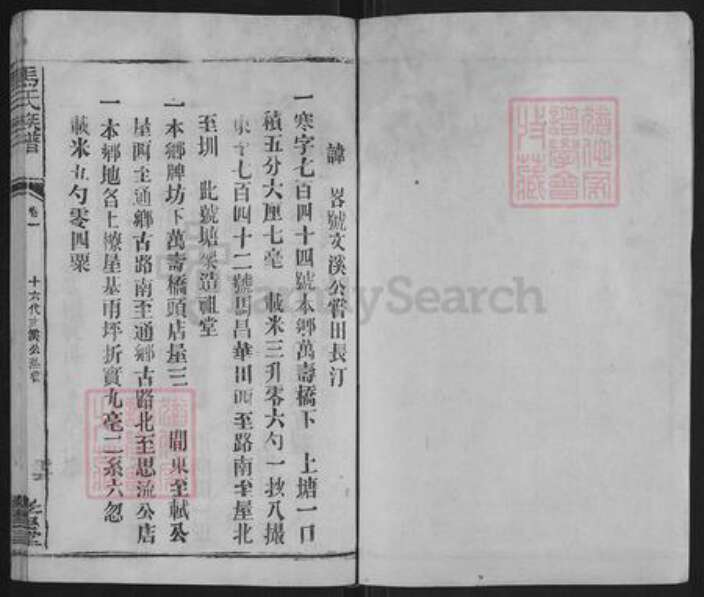 諱畧號文溪公嘗田長汀
一寒字七百四十四號本鄉萬壽橋下上塘一口
積五分六厘七毫載米三升零六勺一抄八撮
東至七百四十二號馬昌華田西至路南至屋北
至圳此號塘架造祖堂
一本鄉牌坊下萬壽橋頭店屋三間東至軾公
屋西至通鄉古路南至通鄉古路北至思流公店
一本鄉地名上寮屋基雨坪折實九毫二系六忽
載米五勺零四粟
馬氏族譜
卷一
十六代文溪公
FamilySearch